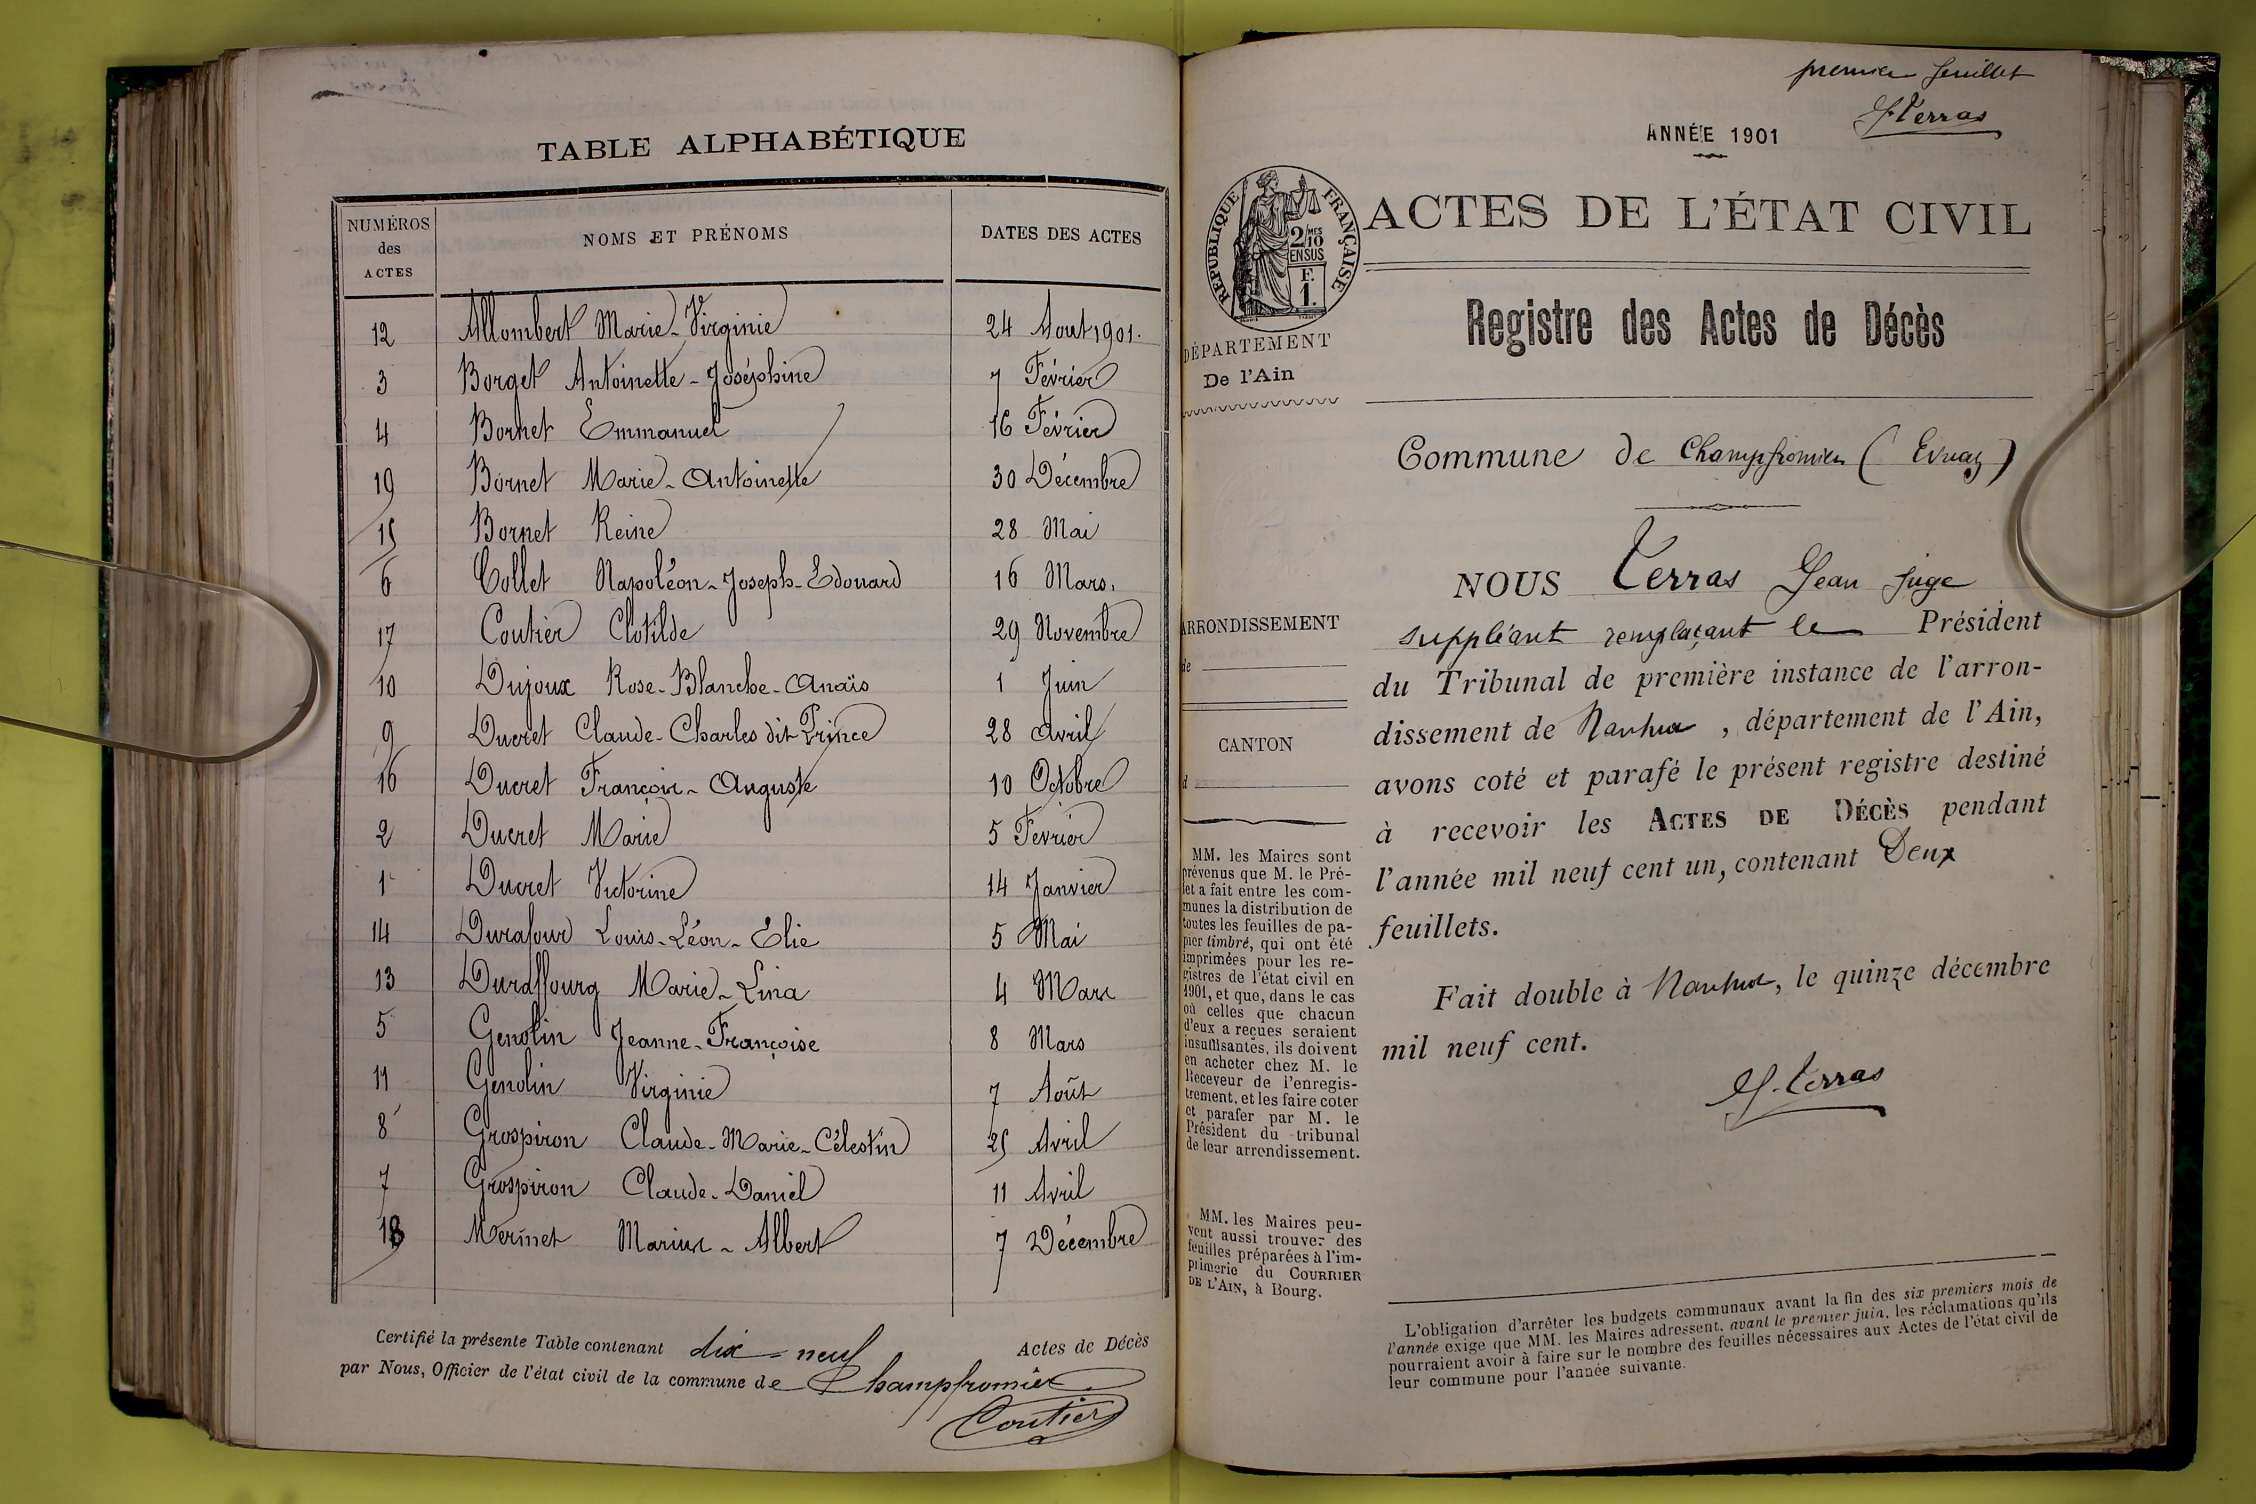 TABLE ALPHABÉTIQUE
NUMÉROS des ACTES NOMS ET PRÉNOMS DATES DES ACTES
12 Allombert Marie-Virginie 24 Aout 1901.
3 Borget Antoinette-Joséphine 7 Février
4 Bornet Emmanuel 16 Février
19 Bornet Marie-Antoinette 30 Décembre
15 Bornet Reine 28 Mai
6 Collet Napoléon-Joseph-Edouard 16 Mars.
17 Coutier Clotilde 29 Novembre
10 Dujoux Rose-Blanche-Anaïs 1 Juin
9 Ducret Claude-Charles dit Prince 28 Avril
16 Ducret François-Auguste 10 Octobre
2 Ducret Marie 5 Fevrier
1 Ducret Victorine 14 Janvier
14 Durafour Louis-Léon-Elie 5 Mai
13 Duraffourg Marie-Lina 4 Mars
5 Genolin Jeanne-Françoise 8 Mars
11 Genolin Virginie 7 Août
8 Grospiron Claude-Marie-Célestin 25 Avril
7 Grospiron Claude-Daniel 11 Avril
18 Mermet Marius-Albert 7 Décembre
Certifié la présente Table contenant dix-neuf Actes de Décès
par Nous, Officier de l'état civil de la commune de Champfromier
Coutier
premier feuillet
J Terras
ANNÉE 1901
RÉPUBLIQUE FRANÇAISE
2/10 MES
EN SUS
F.
1.
ACTES DE L'ÉTAT CIVIL
DÉPARTEMENT
De l'Ain
Registre des Actes de Décès
Commune de Champfromier (Evuaz)
ARRONDISSEMENT
de
CANTON
d
MM. les Maires sont
prévenus que M. le Pré-
fet a fait entre les com-
munes la distribution de
toutes les feuilles de pa-
pier timbré, qui ont été
imprimées pour les re-
gistres de l'état civil en
1901, et que, dans le cas
où celles que chacun
d'eux a reçues seraient
insuffisantes, ils doivent
en acheter chez M. le
Receveur de l'enregis-
trement, et les faire coter
et parafer par M. le
Président du tribunal
de leur arrondissement.
MM. les Maires peu-
vent aussi trouver des
feuilles préparées à l'im-
primerie du COURRIER
DE L'AIN, à Bourg.
NOUS Terras Jean juge
suppléant remplaçant le Président
du Tribunal de première instance de l'arron-
dissement de Nantua, département de l'Ain,
avons coté et parafé le présent registre destiné
à recevoir les ACTES DE DÉCÈS pendant
l'année mil neuf cent un, contenant Deux
feuillets.
Fait double à Nantua, le quinze décembre
mil neuf cent.
J. Terras
L'obligation d'arrêter les budgets communaux avant la fin des six premiers mois de
l'année exige que MM. les Maires adressent, avant le premier juin, les réclamations qu'ils
pourraient avoir à faire sur le nombre des feuilles nécessaires aux Actes de l'état civil de
leur commune pour l'année suivante.